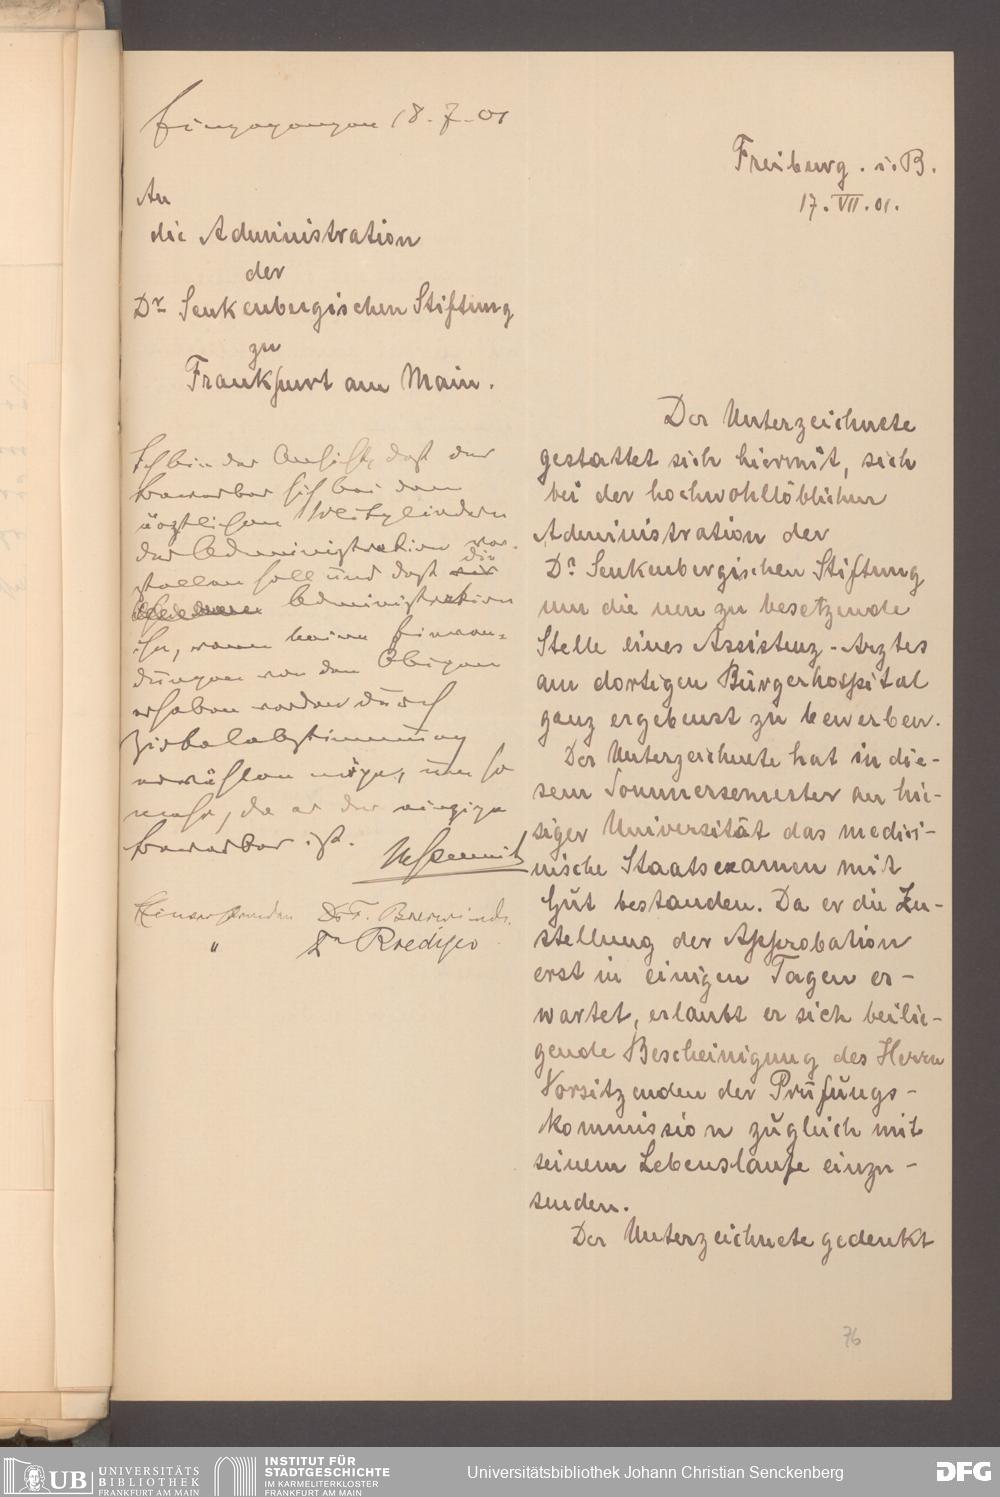 Eingegangen 18.7.01
Freiburg. i. B.
17. VII. 01.
An
die Administration
der
Dr. Senkenbergischen Stiftung
zu
Frankfurt am Main.
Ich bin der Ansicht, daß der
Bewerber sich bei den
ärztlichen Mitgliedern
der Administration vor-
stellen soll und daß die
Administration
ihn, wenn keine Einwen-
dungen von den Obigen
erhoben werden durch
Zirkelabstimmung
erwählen möge, um so
mehr, da er der einzige
Bewerber ist.
Einverstanden Dr F.
" Dr
Der Unterzeichnete
gestattet sich hiermit, sich
bei der hochwohllöblichen
Administration der
Dr. Senkenbergischen Stiftung
um die neu zu besetzende
Stelle eines Assistenz-Arztes
am dortigen Bürgerhospital
ganz ergebenst zu bewerben.
Der Unterzeichnete hat in die-
sem Sommersemester an hie-
siger Universität das medici-
nische Staatsexamen mit
Gut bestanden. Da er die Zu-
stellung der Approbation
erst in einigen Tagen er-
wartet, erlaubt er sich beilie-
gende Bescheinigung des Herrn
Vorsitzenden der Prüfungs-
kommission zugleich mit
seinem Lebenslaufe einzu-
senden.
Der Unterzeichnete gedenkt
76
UB UNIVERSITÄTS
BIBLIOTHEK
FRANKFURT AM MAIN
INSTITUT FÜR
STADTGESCHICHTE
IM KARMELITERKLOSTER
FRANKFURT AM MAIN
Universitätsbibliothek Johann Christian Senckenberg
DFG